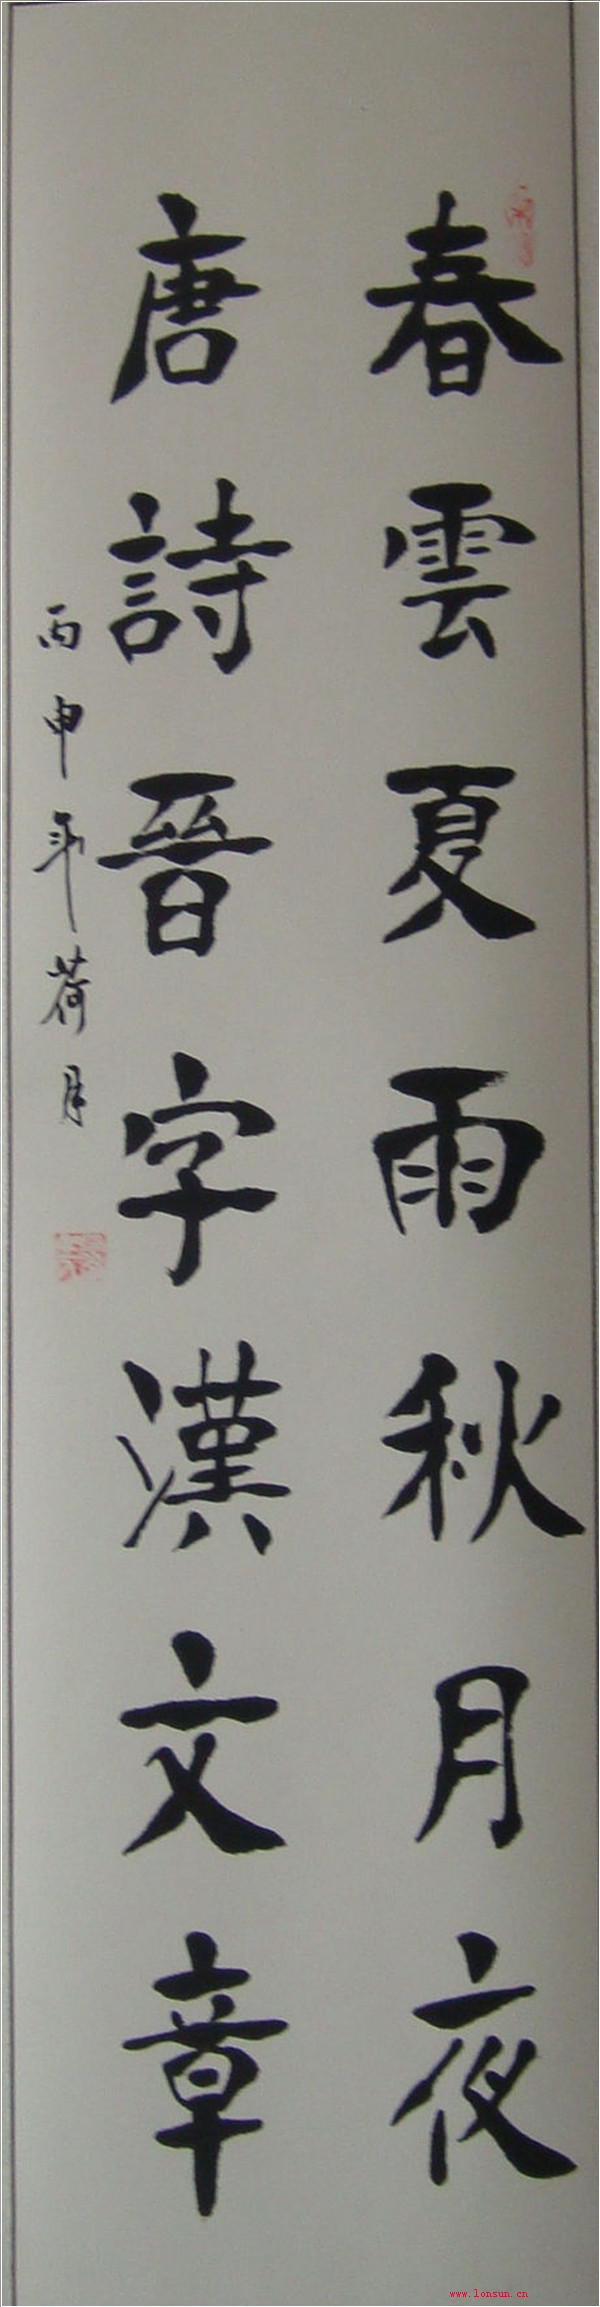 春雲夏雨秋月夜
唐詩晉字漢文章
丙申年荷月
www.lonsun.cn